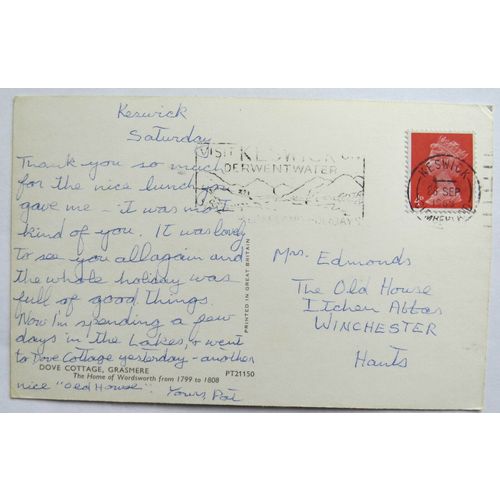 Keswick
Saturday
Thank you so much
for the nice lunch you
gave me - it was most
kind of you. It was lovely
to see you all again and
the whole holiday was
full of good things.
Now I'm spending a few
days in the Lakes, & went
to Dove Cottage yesterday - another
nice "Old House". Yours, Pat
DOVE COTTAGE, GRASMERE
The Home of Wordsworth from 1799 to 1808
PT21150
PRINTED IN GREAT BRITAIN
VISIT KESWICK ON
DERWENTWATER
KESWICK
SEP
Mrs. Edmonds
The Old House
Itchen Abbas
WINCHESTER
Hants